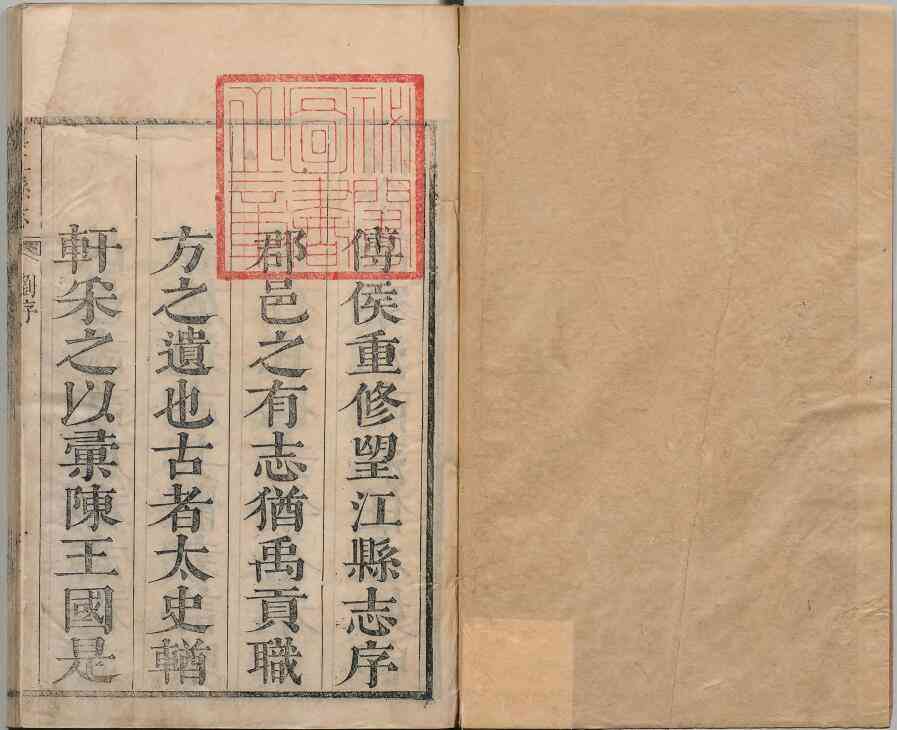 傅侯重修望江縣志序
郡邑之有志猶禹貢職
方之遺也古者太史輶
軒采之以彚陳王國是
劉序
秘閣圖書之章